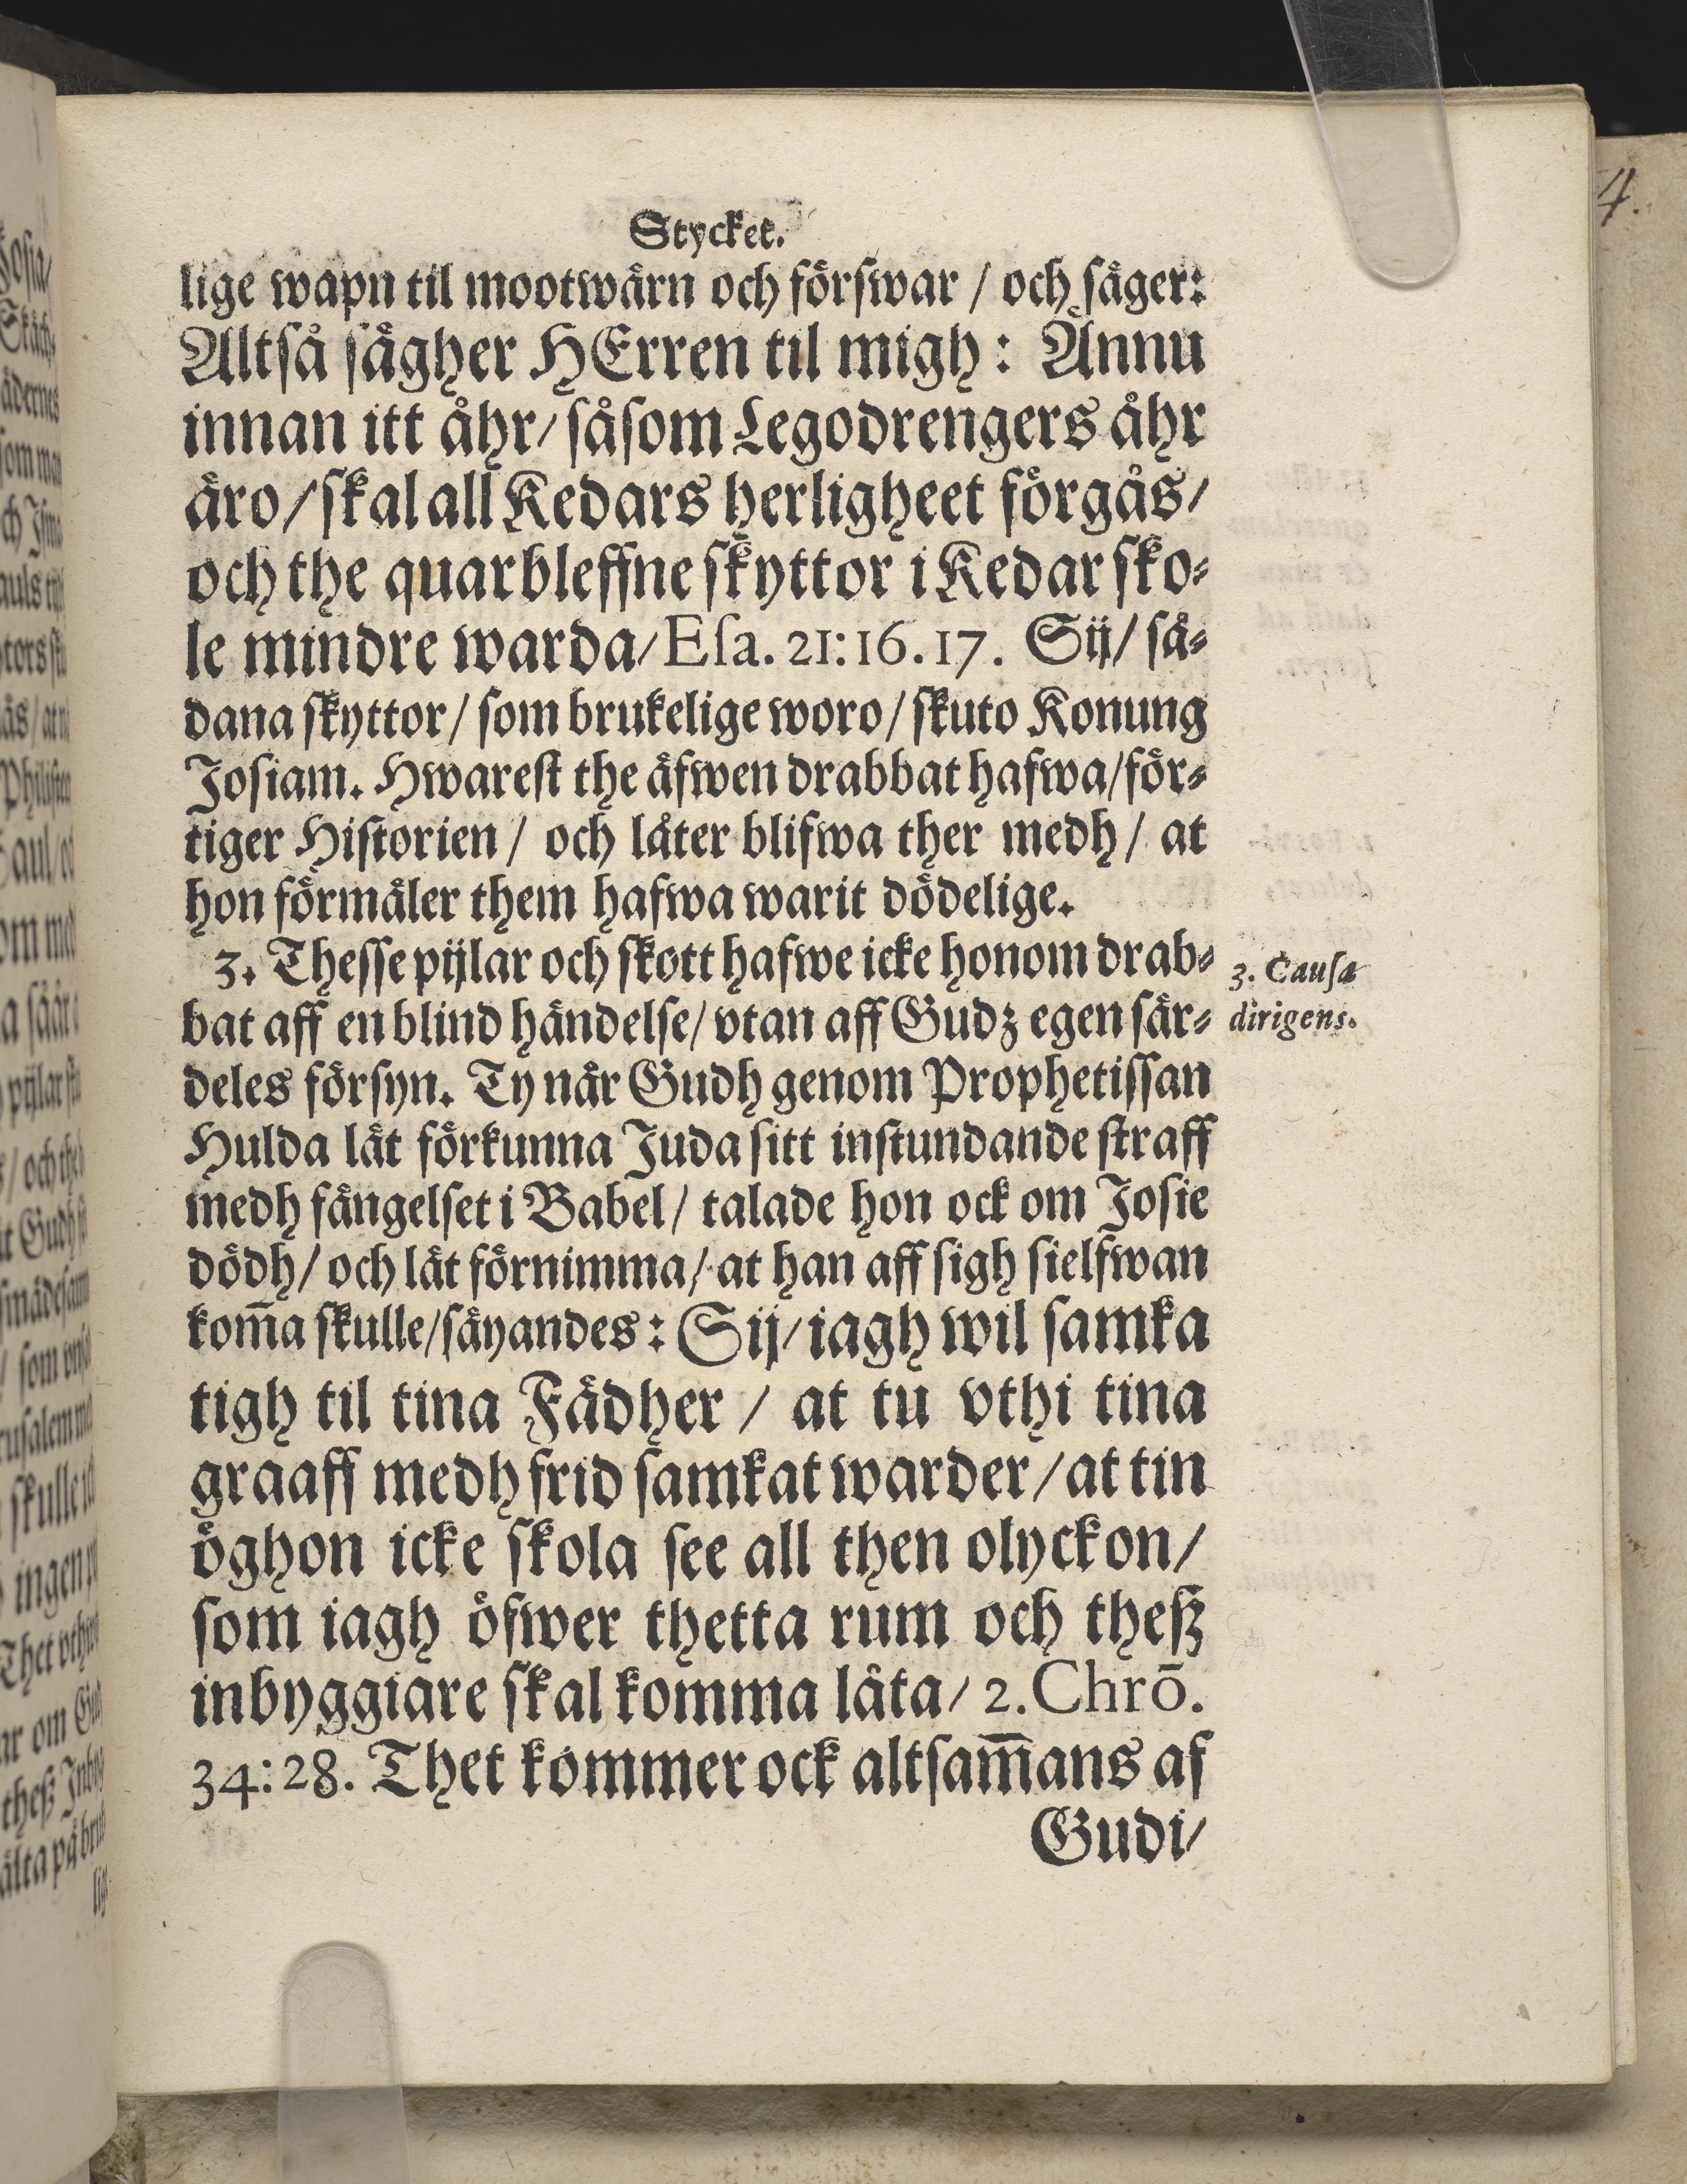 Stycket.
lige wapn til mootwärn och förſwar / och ſäger:
Altſå ſägher HErren til migh: Ännu
innan itt åhr/ ſåſom Legodrengers åhr
äro/ ſkal all Kedars herligheet förgås/
och the quarbleffne ſkyttor i Kedar ſko⸗
le mindre warda/ Eſa. 21:16.17. Sij/ ſå⸗
dana ſkyttor/ ſom brukelige woro/ ſkuto Konung
Joſiam. Hwareſt the äfwen drabbat hafwa/ för⸗
tiger Hiſtorien / och låter blifwa ther medh / at
hon förmäler them hafwa warit dödelige.
3. Theſſe pijlar och ſkott hafwe icke honom drab⸗
3. Cauſa
bat aff en blind händelſe/ vtan aff Gudz egen ſär⸗
dirigens.
deles förſyn. Ty når Gudh genom Prophetiſſan
Hulda låt förkunna Juda ſitt inſtundande ſtraff
medh fängelſet i Babel/ talade hon ock om Joſie
dödh/ och låt förnimma/ at han aff ſigh ſielfwan
kom̄a ſkulle/ ſäyandes: Sij/ iagh wil ſamka
tigh til tina Fädher / at tu vthi tina
graaff medh frid ſamkat warder/ at tin
öghon icke ſkola ſee all then olyckon/
ſom iagh öfwer thetta rum och theſz
inbyggiare ſkal komma låta/ 2. Chrō.
34:28. Thet kommer ock altſam̄ans af
Gudi/
4.